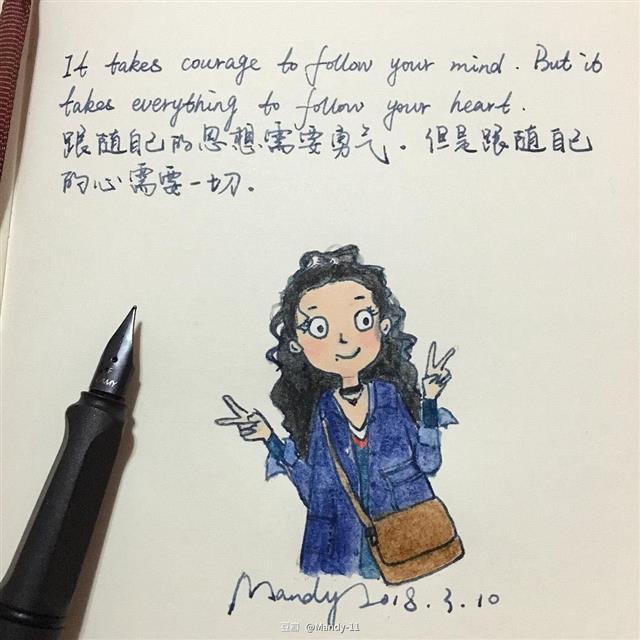 It takes courage to follow your mind. But it
takes everything to follow your heart.
跟随自己的思想需要勇气。但是跟随自己
的心需要一切。
Mandy 2018.3.10
豆瓣 @Mandy-11